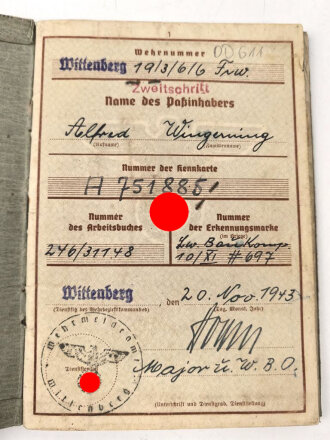 1
Wehrnummer
DD 611
Wittenberg 19/3/6/6 Frw.
Zweitschrift
Name des Paßinhabers
Alfred
(Rufname) (Familienname)
Nummer der Kennkarte
A 751885
Nummer des Arbeitsbuches
Nummer der Erkennungsmarke
246/31148
Lw. Baukomp.
10/XI # 697
Wittenberg, den 20. Nov. 1943
Wehrmeldeamt Wittenberg
Major u. W. B. O.
(Unterschrift und Dienstgrad, Dienststellung)